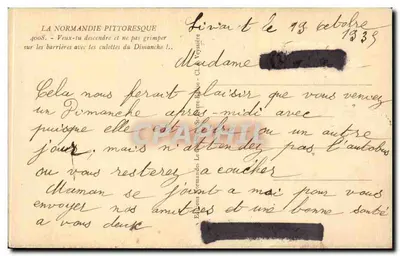 LA NORMANDIE PITTORESQUE
4008. - Veux-tu descendre et ne pas grimper
sur les barrières avec tes culottes du Dimanche !..
le 13 octobre
1935
Madame
Cela nous ferait plaisir que vous veniez
un Dimanche après-midi avec
puisque elle est ou un autre
jour, mais n'attendez pas l'autobus
ou vous resterez a coucher
Maman se joint a moi pour vous
envoyer nos amitiés et une bonne santé
a vous deux